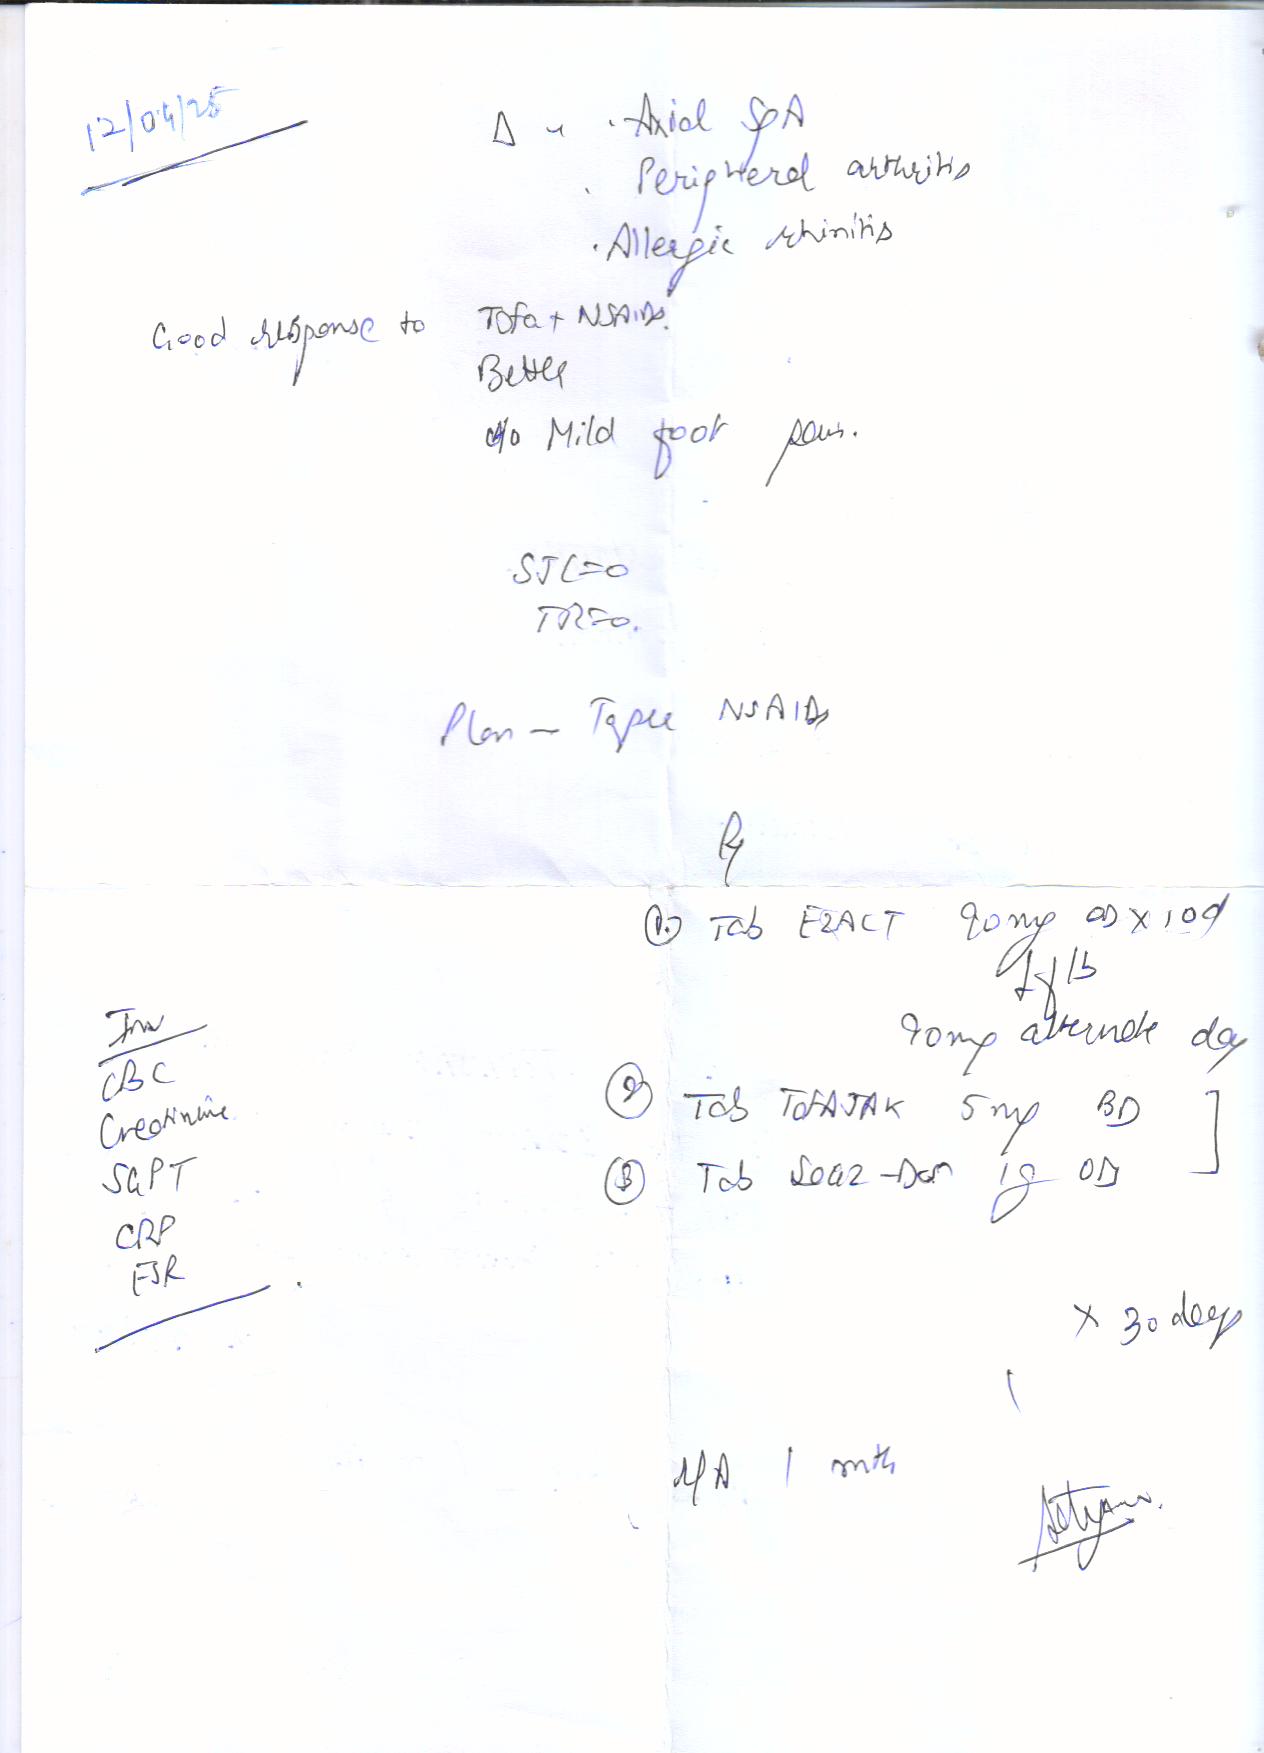 12/04/25
Δ - . Axial SpA
. Peripheral arthritis
. Allergic rhinitis
Good response to Tofa + NSAIDs.
Better
c/o Mild foot pain.
SJC=0
TJC=0.
Plan - Taper NSAIDs
Rx
1. Tab EZACT 90mg OD x 10d
f/b
90mg alternate day
2 Tab TOFAJAK 5mg BD
3 Tab 1g OD
x 30 days
Inv
CBC
Creatinine
SGPT
CRP
ESR
R/A 1 mth